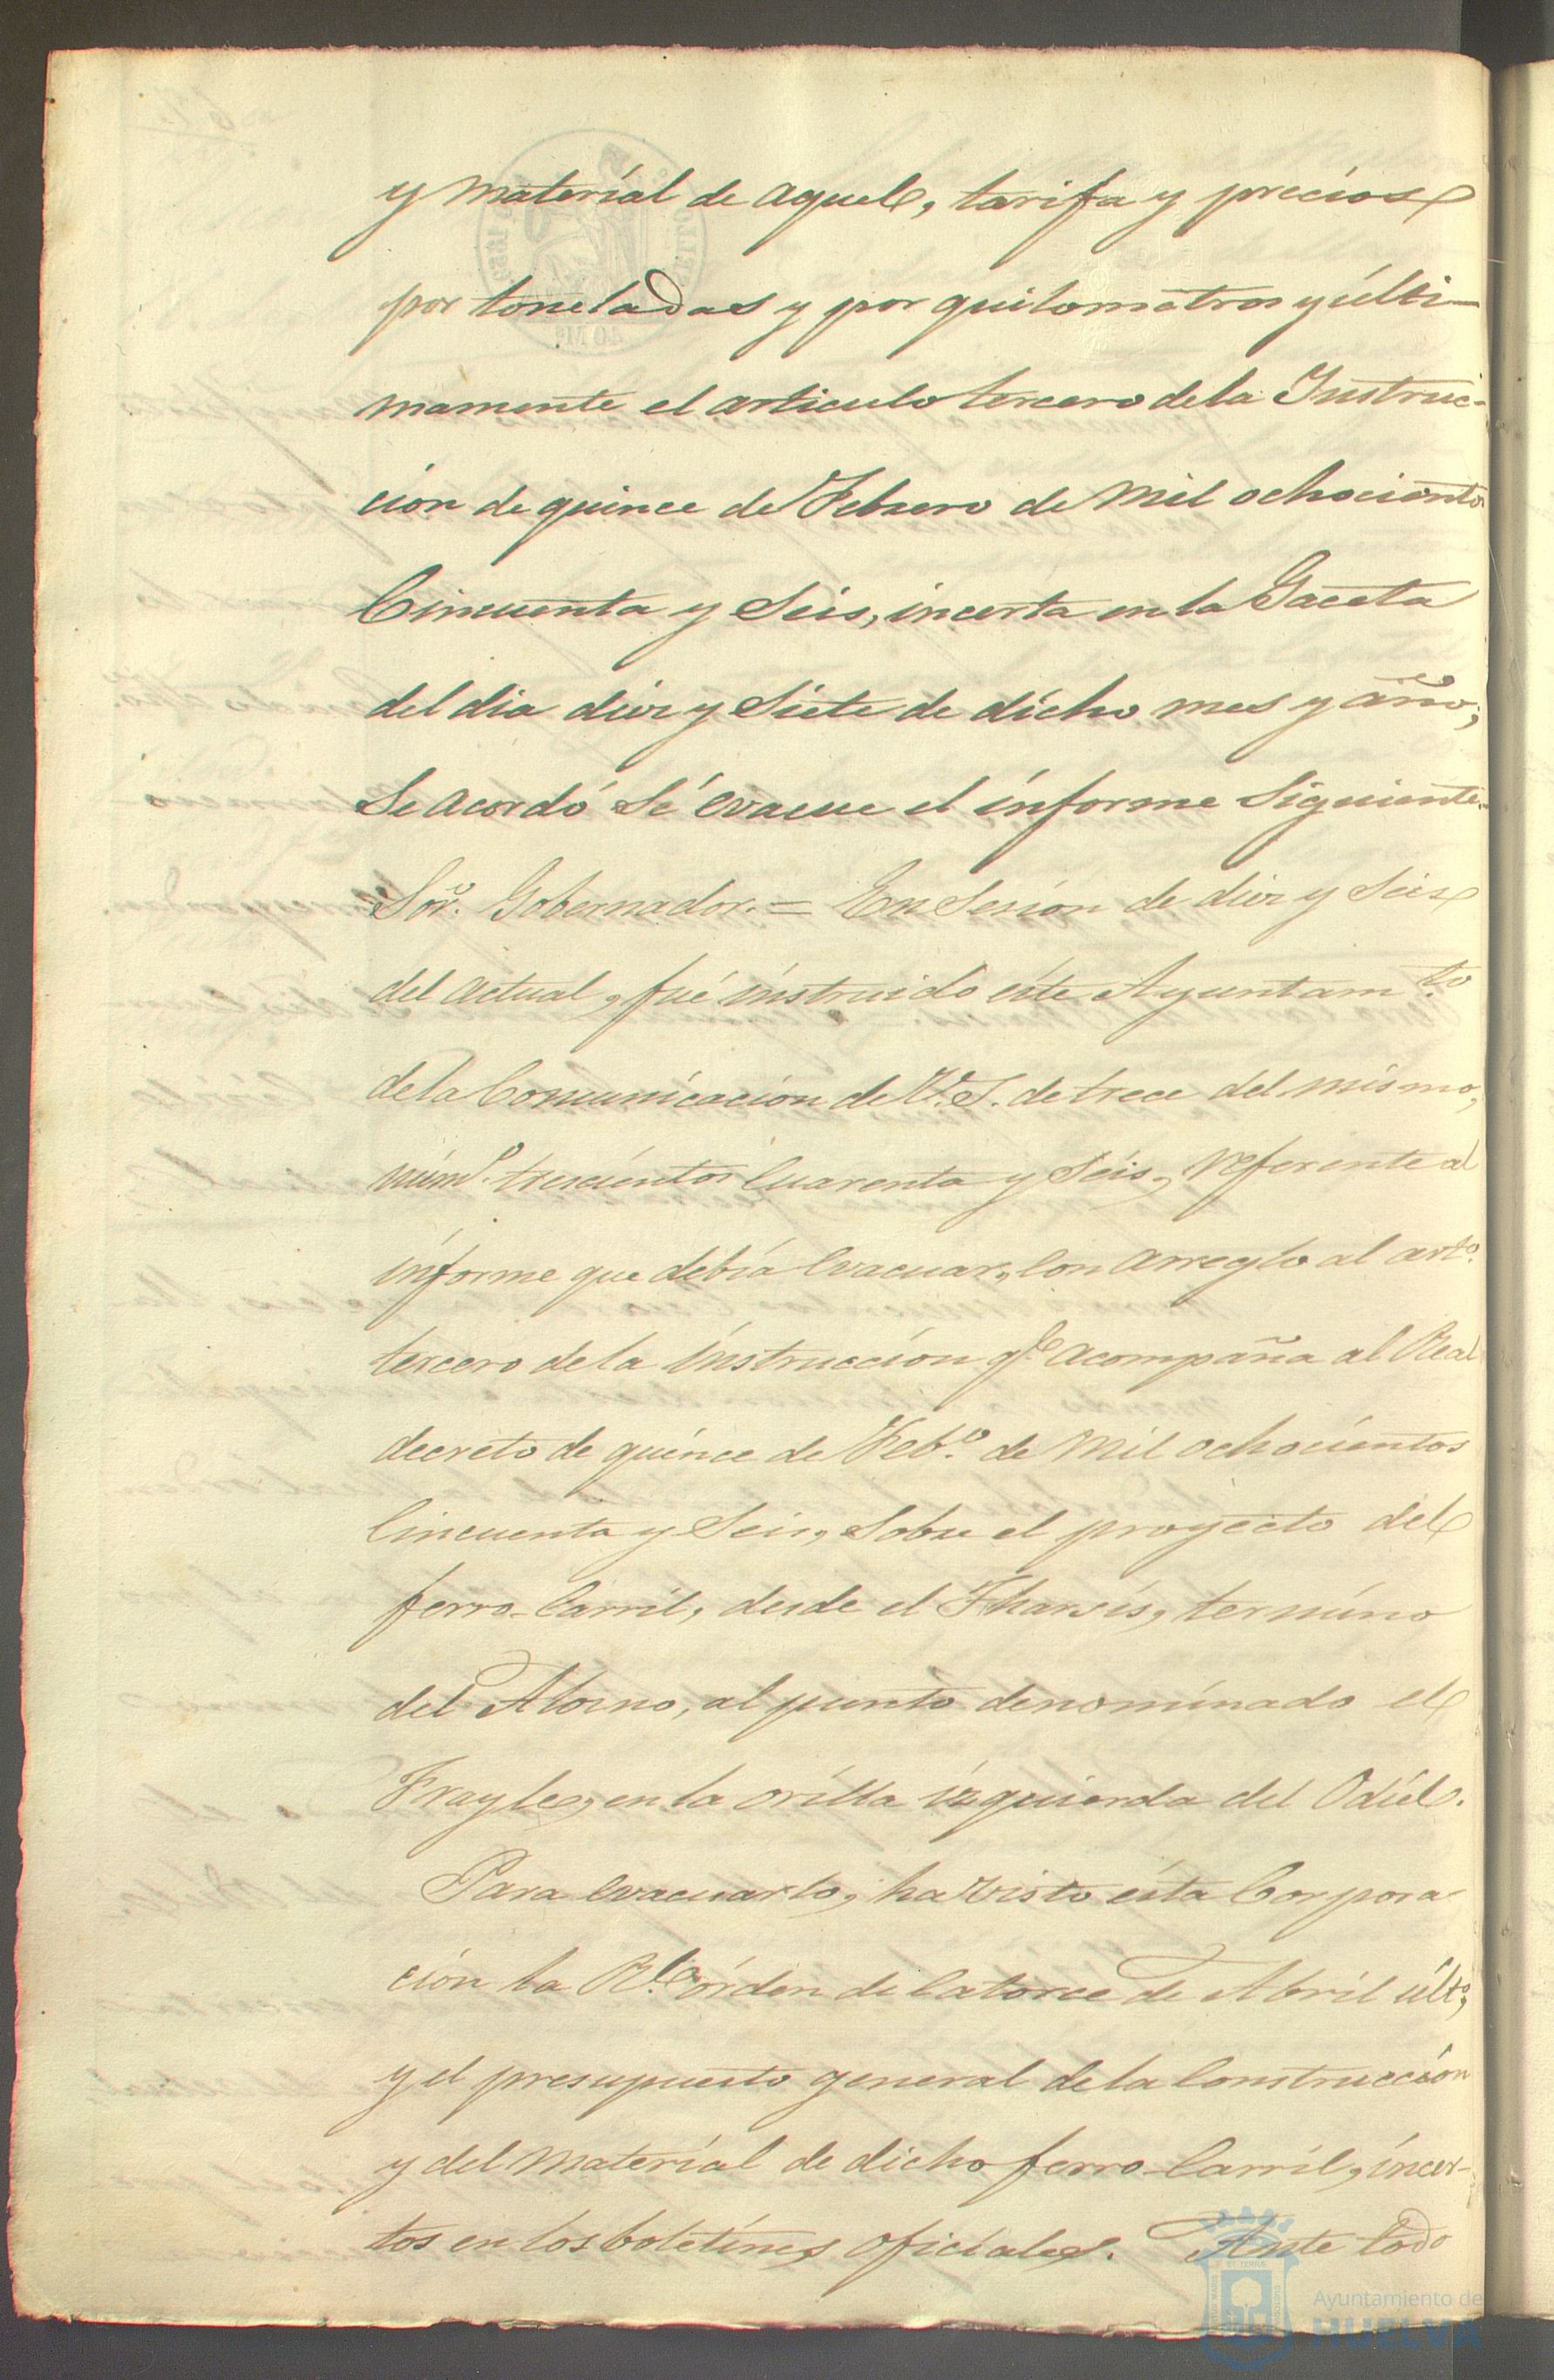 y material de aquel, tarifa y precios
por toneladas y por quilometros y últi-
mamente el articulo tercero de la Instruc-
cion de quince de Febrero de mil ochocientos
Cincuenta y Seis, incerta en la Gaceta
del dia diez y Siete de dicho mes y año,
Se acordó Sé evacue el informe Siguiente.
Sor. Gobernador. = En Sesión de diez y Seis
del actual, fué instruido éste Ayuntamto.
de la Comunicación de V.S. de trece del mismo,
núm.o trescientos Cuarenta y Séis, referente al
informe que debía Evacuar, con arreglo al arto.
tercero de la instrucción qe. acompaña al Real
decreto de quince de Febo. de mil ochocientos
Cincuenta y Seis, Sobre el proyecto del
ferro-Carril, desde el Tharsis, termino
del Alosno, al punto denominado el
Frayle, en la orilla izquierda del Odiel.
Para Evacuarlo, ha visto ésta Corpora-
ción la Rl. órden de Catorce de Abril últo.,
y el presupuesto general de la Construcción
y del material de dicho ferro-Carril, incer-
tos en los boletines oficiales. Ante todo
Ayuntamiento de
HUELVA